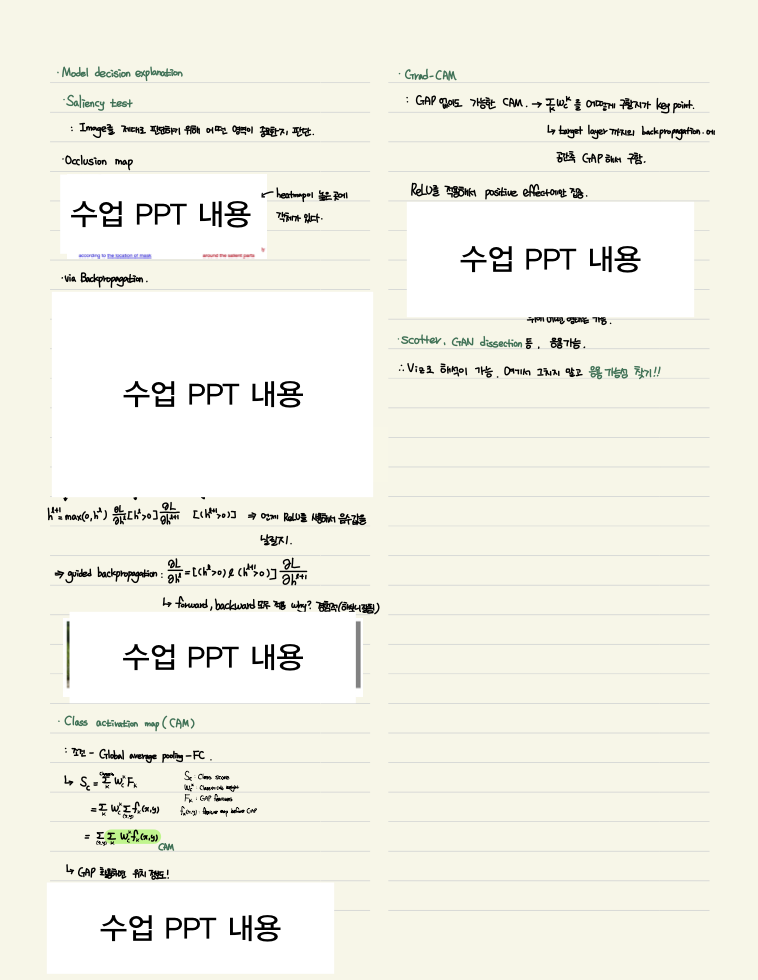 · Model decision explanation
· Saliency test
: Image를 제대로 판단하기 위해 어떤 영역이 중요한지, 판단.
· Occlusion map
수업 PPT 내용
← heatmap이 높은 곳에
객체가 있다.
according to the location of mask
around the salient parts
· via Backpropagation.
수업 PPT 내용
h^{l+1} = max(0, h^l) ∂L/∂h^l [h^l>0] ∂L/∂h^{l+1} [(h^{l+1}>0)] ⇒ 언제 ReLU를 써서 음수값을
날릴지.
⇒ guided backpropagation : ∂L/∂h^l = [(h^l>0) & (h^{l+1}>0)] ∂L/∂h^{l+1}
↳ forward, backward 모두 적용 why? 경험적(해보니 잘됨)
수업 PPT 내용
· Class activation map (CAM)
: 조건 - Global average pooling - FC.
↳ S_c = Σ_k W_c^k F_k
S_c : Class score
F_k : GAP features
f_k(x,y) : feature map before GAP
= Σ_k W_c^k Σ_(x,y) f_k(x,y)
= Σ_(x,y) Σ_k W_c^k f_k(x,y)
CAM
↳ GAP 위치 정보!
수업 PPT 내용
· Grad-CAM
: GAP 없이도 가능한 CAM. → Σ_k W_c^k 를 어떻게 구할지가 key point.
↳ target layer 까지의 backpropagation. 에
공간축 GAP 해서 구함.
ReLU를 적용해서 positive effect에만 집중.
수업 PPT 내용
· Scotter, GAN dissection 등, 응용가능.
∴ Viz로 해석이 가능, 여기서 그치지 말고 응용 가능성 찾기!!